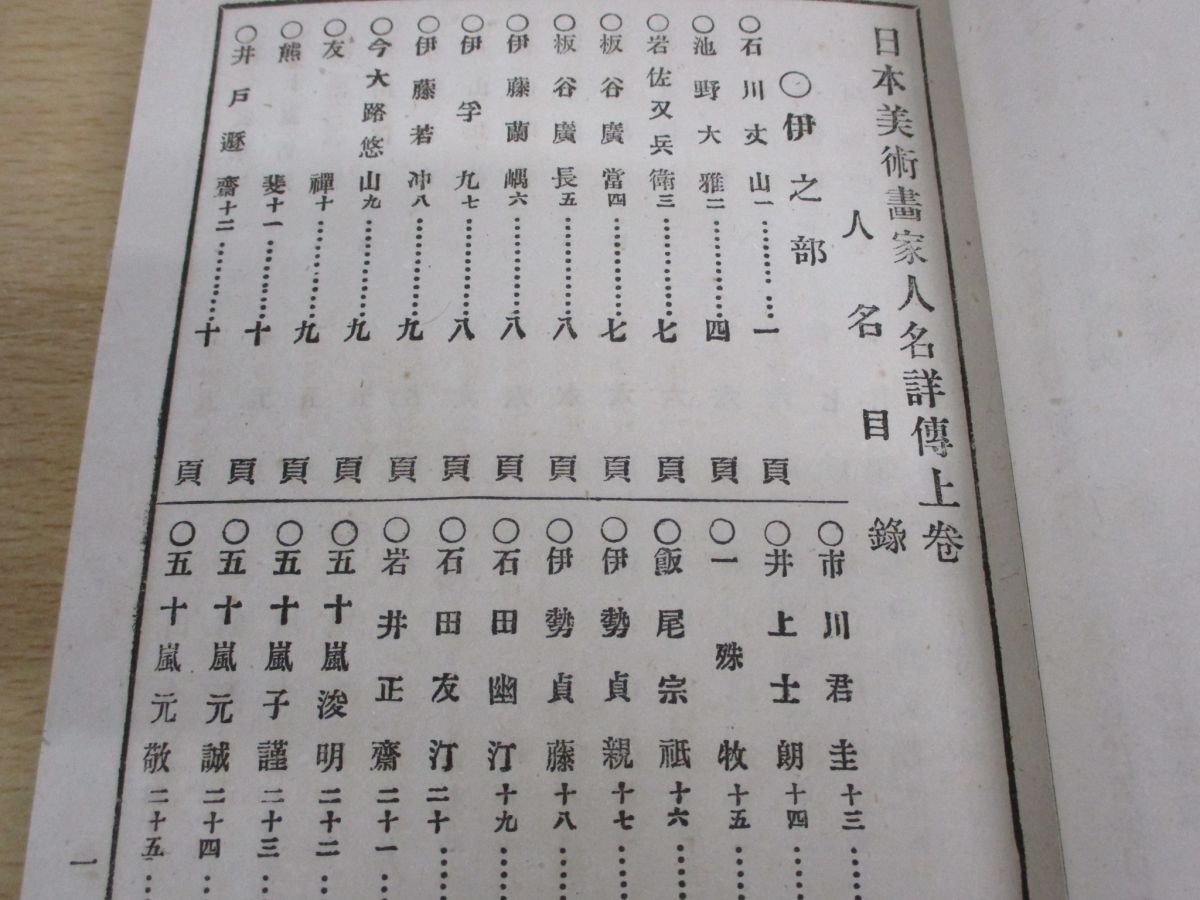 日本美術畫家人名詳傳上卷
人名目錄
〇伊之部
〇石川丈山一………一頁
〇池野大雅二………四頁
〇岩佐又兵衛三………七頁
〇板谷廣當四………七頁
〇板谷廣長五………八頁
〇伊藤蘭嵎六………八頁
〇伊孚九七………八頁
〇伊藤若冲八………九頁
〇今大路悠山九………九頁
〇友禪十………九頁
〇熊斐十一………十頁
〇井戸遯齋十二………十頁
〇市川君圭十三……
〇井上士朗十四……
〇一殊牧十五……
〇飯尾宗祇十六……
〇伊勢貞親十七……
〇伊勢貞藤十八……
〇石田幽汀十九……
〇石田友汀二十……
〇岩井正齋二十一……
〇五十嵐浚明二十二……
〇五十嵐子謹二十三……
〇五十嵐元誠二十四……
〇五十嵐元敬二十五……
一